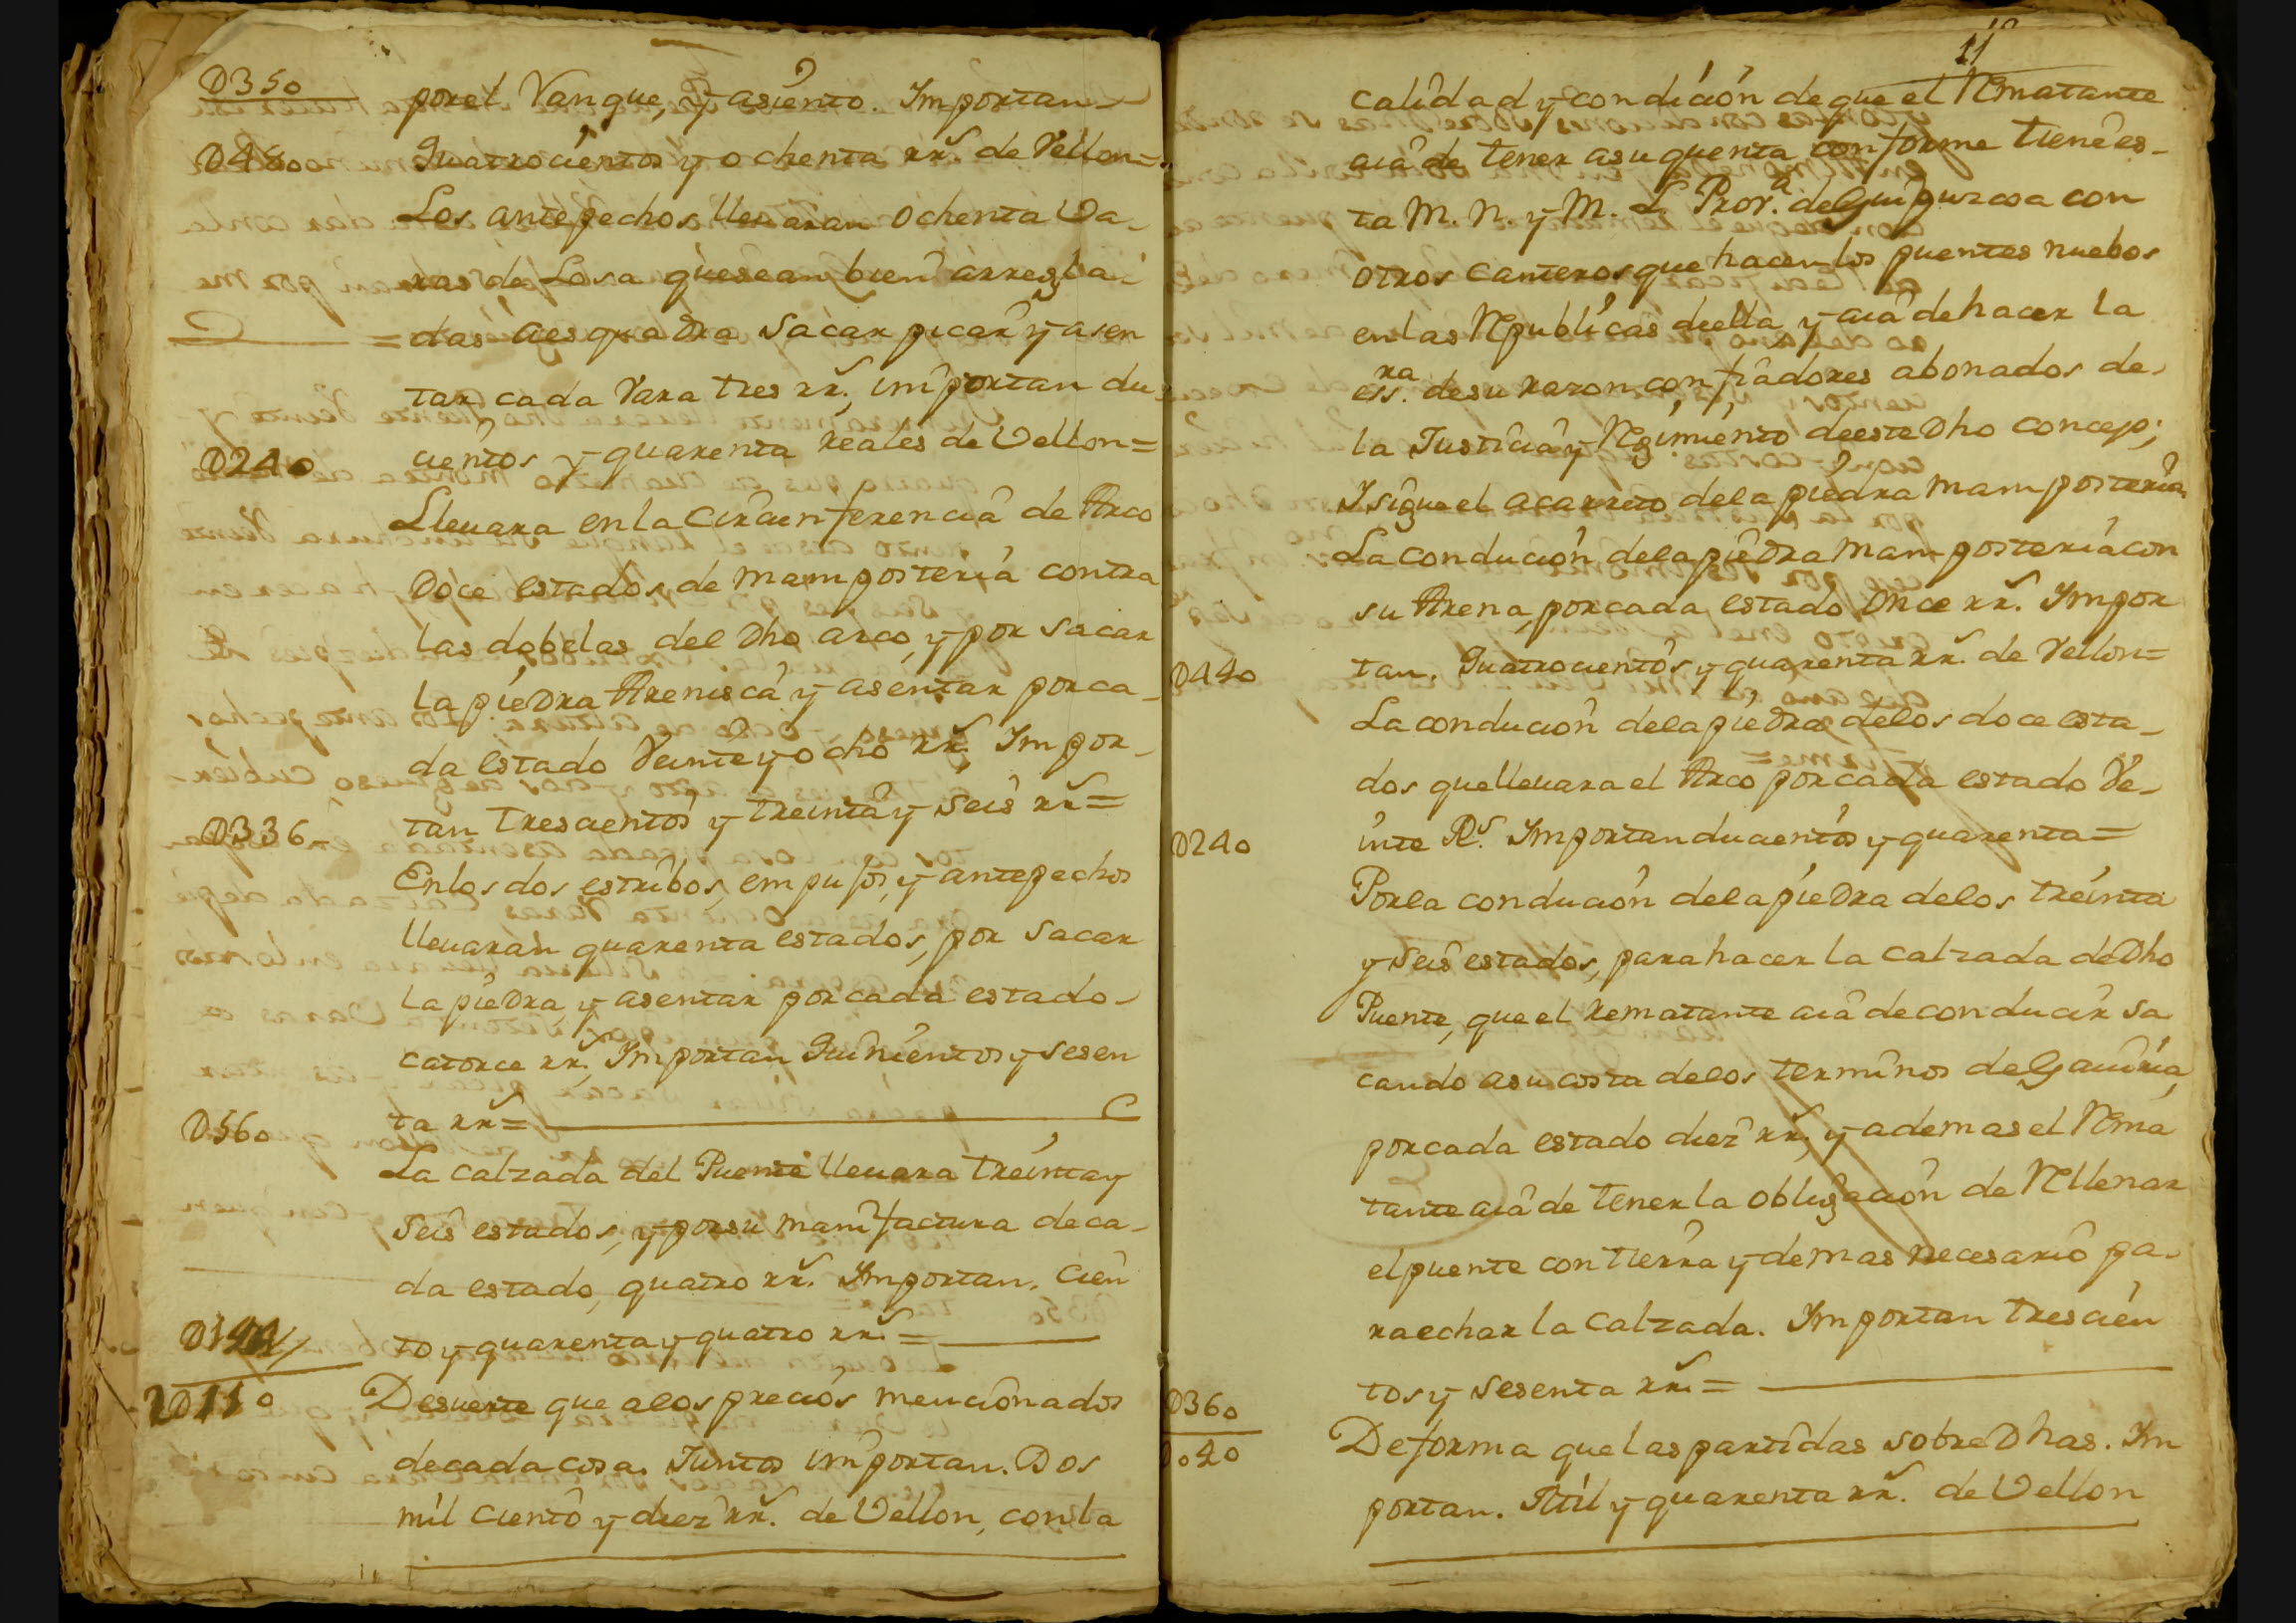 D350
por el Vangue, y asiento. Importan
D480 Quatrocientos y ochenta rr.s de Vellon=
Los antepechos lleuaran ochenta Va-
ras de Losa que sean bien arregla-
das a esquadra Sacar picar y asen
tar cada Vara tres rr.s, importan du
D240 cientos y quarenta reales de Vellon=
Lleuara en la Circunferencia de Arco
Doce estados de mamposteria contra
las dobelas del Dho arco, y por sacar
la piedra Arenisca y asentar por ca-
da estado Veinte y ocho rr.s Impor-
D336 tan trescientos y treinta y seis rr.s=
En los dos estribos, empujos, y antepechos
lleuaran quarenta estados, por sacar
la piedra, y asentar por cada estado-
catorce rr.s Importan Quinientos y sesen
D560 ta rr.s=
La calzada del Puente lleuara treinta y
seis estados, y por su manifactura de ca-
da estado, quatro rr.s. Importan. Cien
D144 to y quarenta y quatro rr.s=
2D110 Desuerte que a los precios mencionados
de cada cosa. Juntos importan. Dos
mil ciento y diez rr.s. de Vellon, con la
11
calidad y condicion de que el Rmatante
aia de tener a su quenta conforme tiene es-
ta M. N. y M. L Prov.a de Guipuzcoa con
otros canteros que hacen los puentes nuebos
en las Rpublicas de ella, y aia de hacer la
ess.ra de su razon con fiadores abonados de
la Justicia y Rgimiento de este Dho concejo;
I sigue el acarreto de la piedra mamposteria
La conducion de la piedra mamposteria con
su Arena, por cada estado Once rr.s. Impor
D440 tan. Quatrocientos y quarenta rr.s. de Vellon=
La conducion de la piedra de los doce esta-
dos que lleuara el Arco por cada estado Ve-
D240 inte R.s. Importan ducientos y quarenta=
Por la conducion de la piedra de los treinta
y seis estados, para hacer la calzada de Dho
Puente, que el rematante aia de conducir sa
cando a su costa de los terminos de Gauiria,
por cada estado diez rr.s, y ademas el Rma
tante aia de tener la obligacion de Rllenar
el puente con tierra y demas necesario pa-
ra echar la calzada. Importan trescien
tos y sesenta rr.s=
D360
De forma que las partidas sobre Dhas. Im
D040 portan. Mil y quarenta rr.s. de Vellon